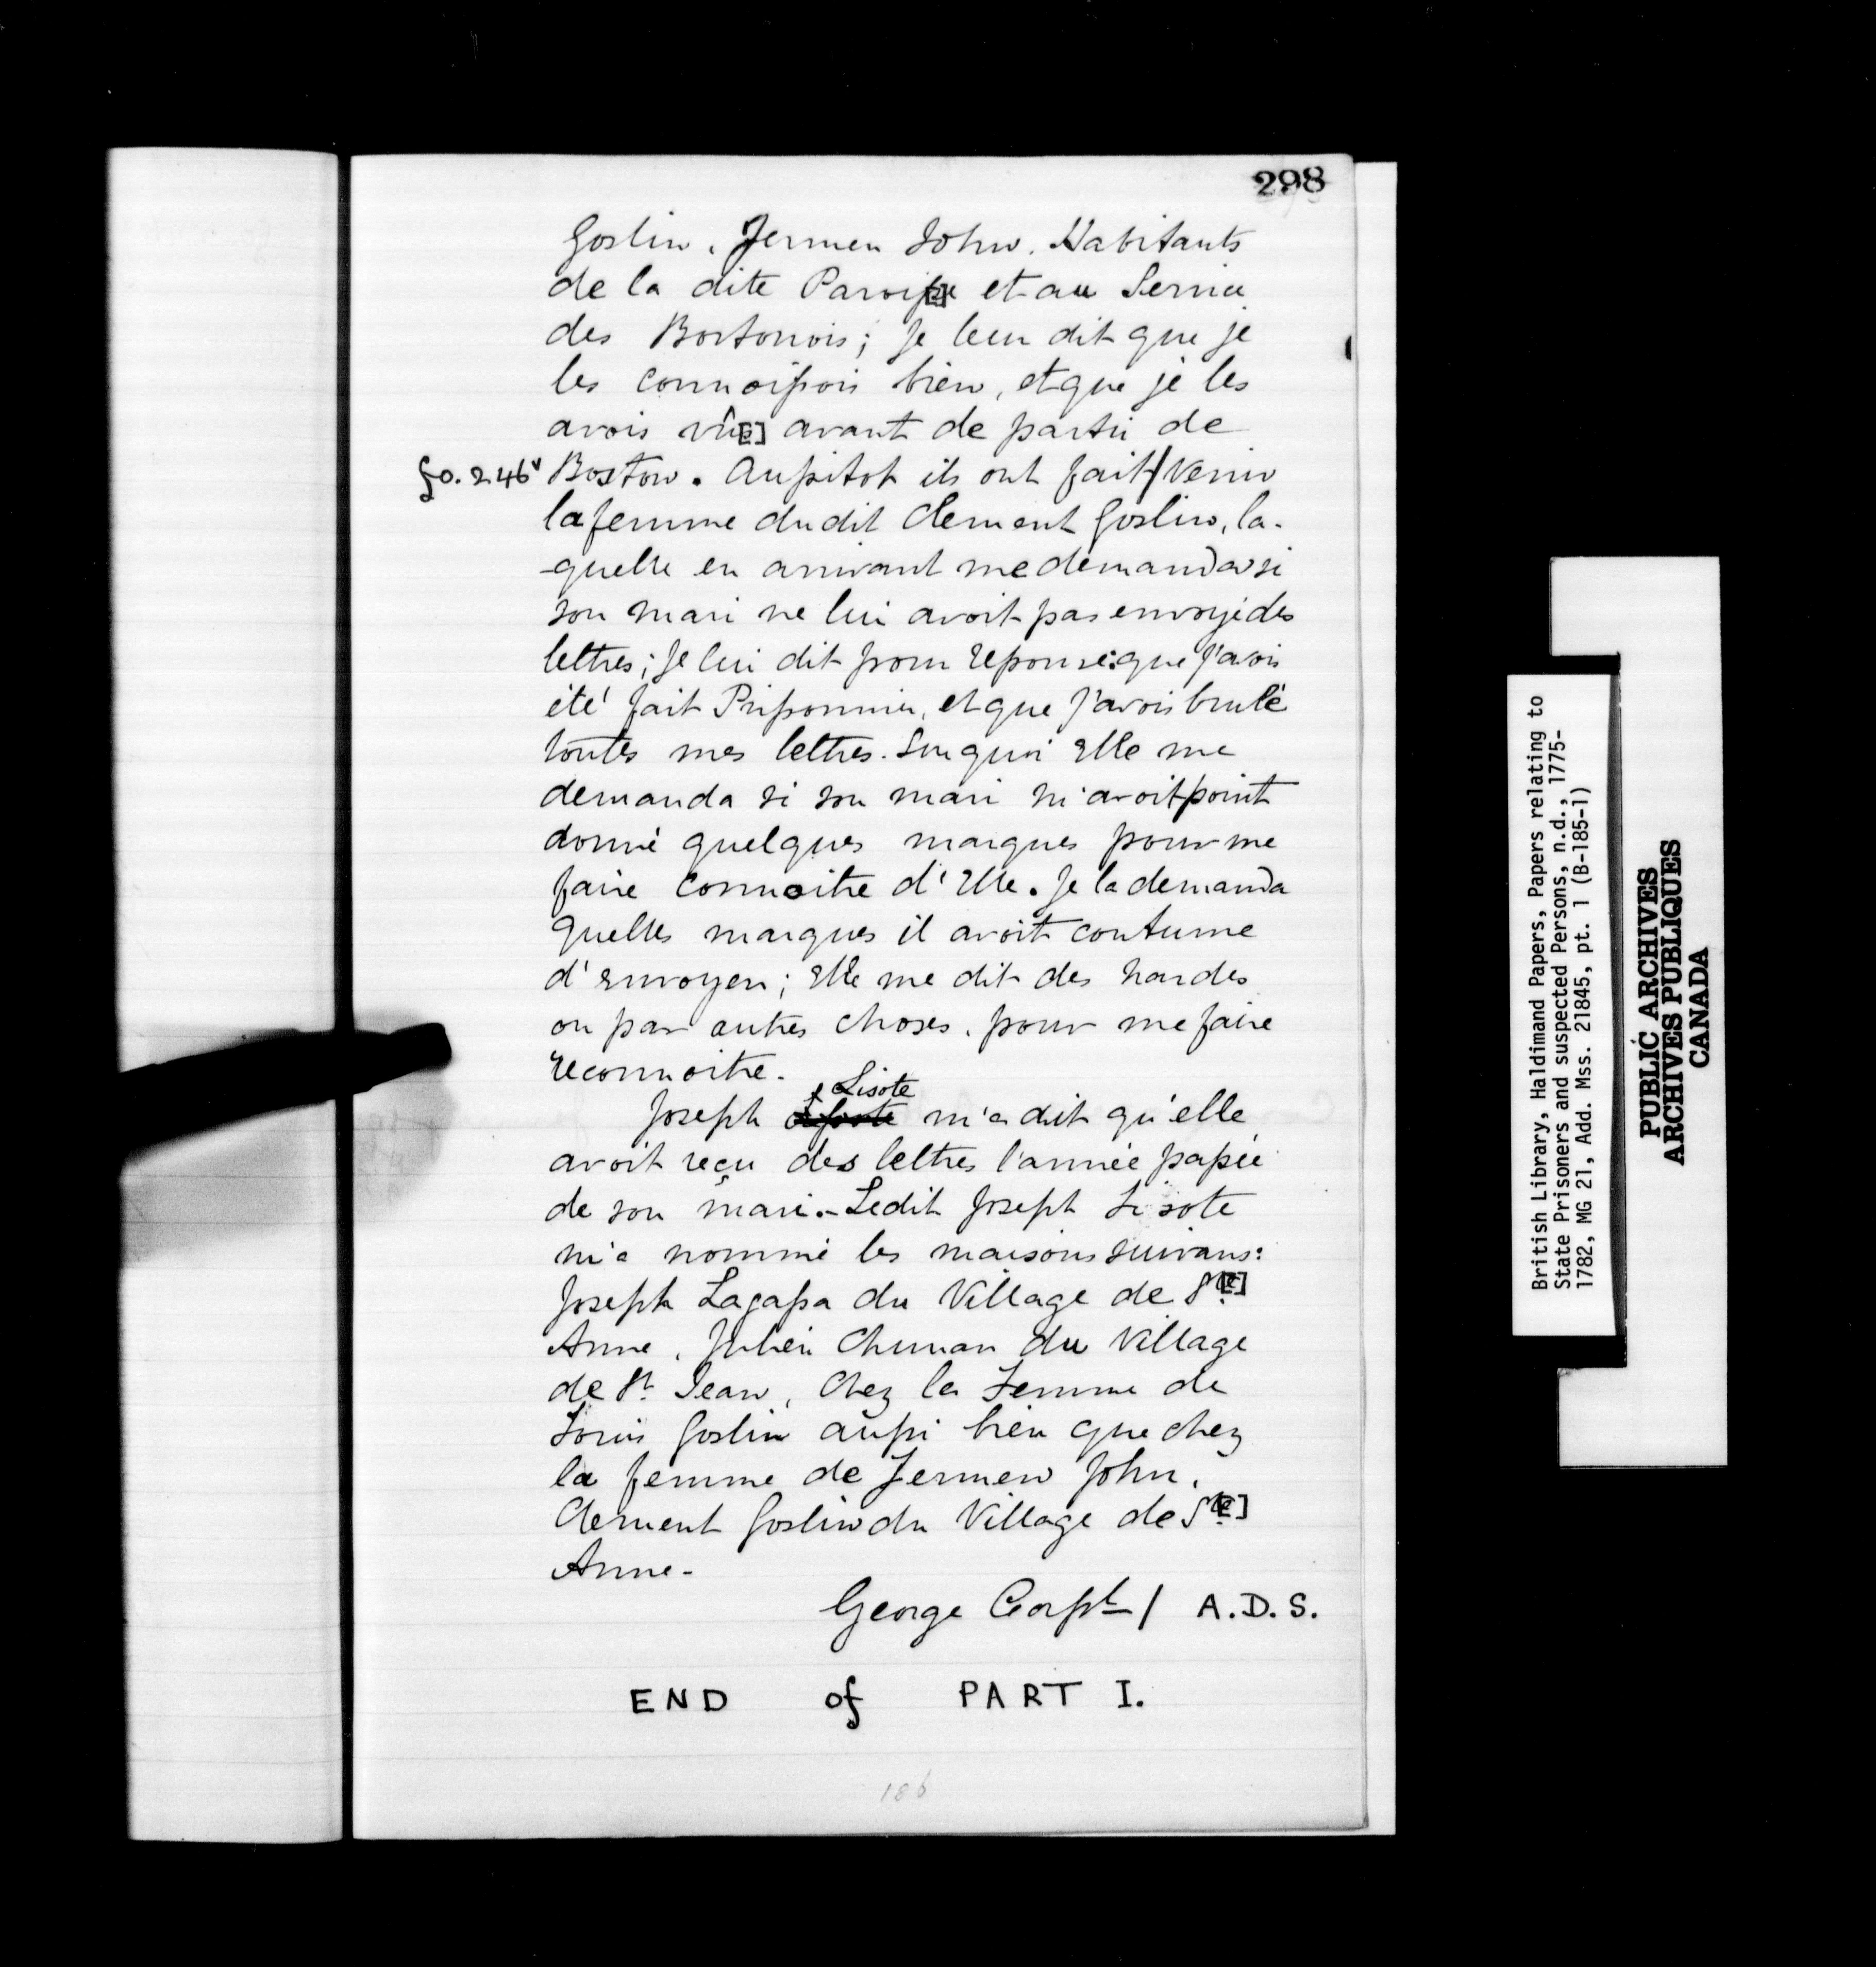 298
Goslin, Jermen John. Habitants
de la dite Paroisse et au Service
des Bostonois; Je leur dit que je
les connoissois bien, et que je les
avois vûe[] avant de partir de
fo. 246v Boston. Aussitot ils ont fait/venir
la femme du dit Clement Goslin, la-
-quelle en arrivant me demanda si
son mari ne lui avoit pas envoyé des
lettres; Je lui dit pour reponse: que j'avois
été fait Prisonnier, et que j'avois brulé
toutes mes lettres. Sur quoi Elle me
demanda si son mari m'avoit point
donné quelques marques pour me
faire connoitre d'Elle. Je la demanda
quelles marques il avoit coutume
d'Envoyer; Elle me dit des hardes
ou par autres choses, pour me faire
reconnoitre.
Lisote
Joseph m'a dit qu'elle
avoit reçu des lettres l'année passée
de son mari.- Ledit Joseph Lisote
m'a nommé les maisons suivans:
Joseph Lagassa du Village de Ste[]
Anne, Julien Chunan du Village
de St. Jean, Chez la Femme de
Louis Goslin aussi bien que chez
la femme de Jermen John.
Clement Goslin du Village de Ste[]
Anne-
George Corpl/ A.D.S.
END of PART I.
186
British Library, Haldimand Papers, Papers relating to
State Prisoners and suspected Persons, n.d., 1775-
1782, MG 21, Add. Mss. 21845, pt. 1 (B-185-1)
PUBLIC ARCHIVES
ARCHIVES PUBLIQUES
CANADA